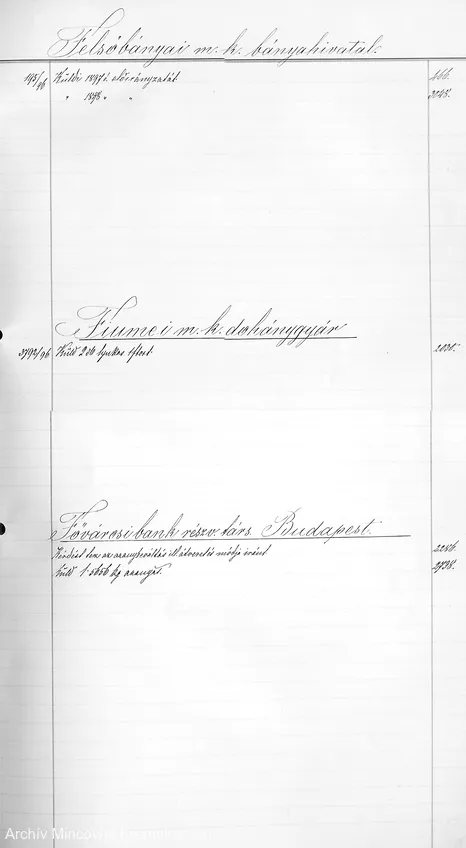 Felsőbányai m. k. bányahivatal.
195/96 Küldi 1897 i. előirányzatát 466.
" 1898 " " 3048.
Fiumei m. k. dohánygyár
3792/96 Küld 2 db lyukas 1 frtost. 2030.
Fővárosi bank részv. társ. Budapest.
Kérdést tesz az aranybeváltás ill. átvevetés módja iránt 2256.
Küld 1·5656 kg aranyat. 2738.
Archív Mincovne Kremnica